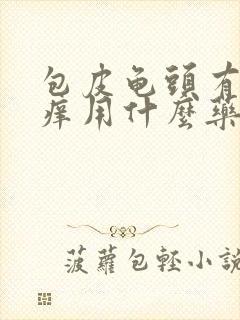 包皮龟頭有
痒用什麼藥
菠蘿包輕小說